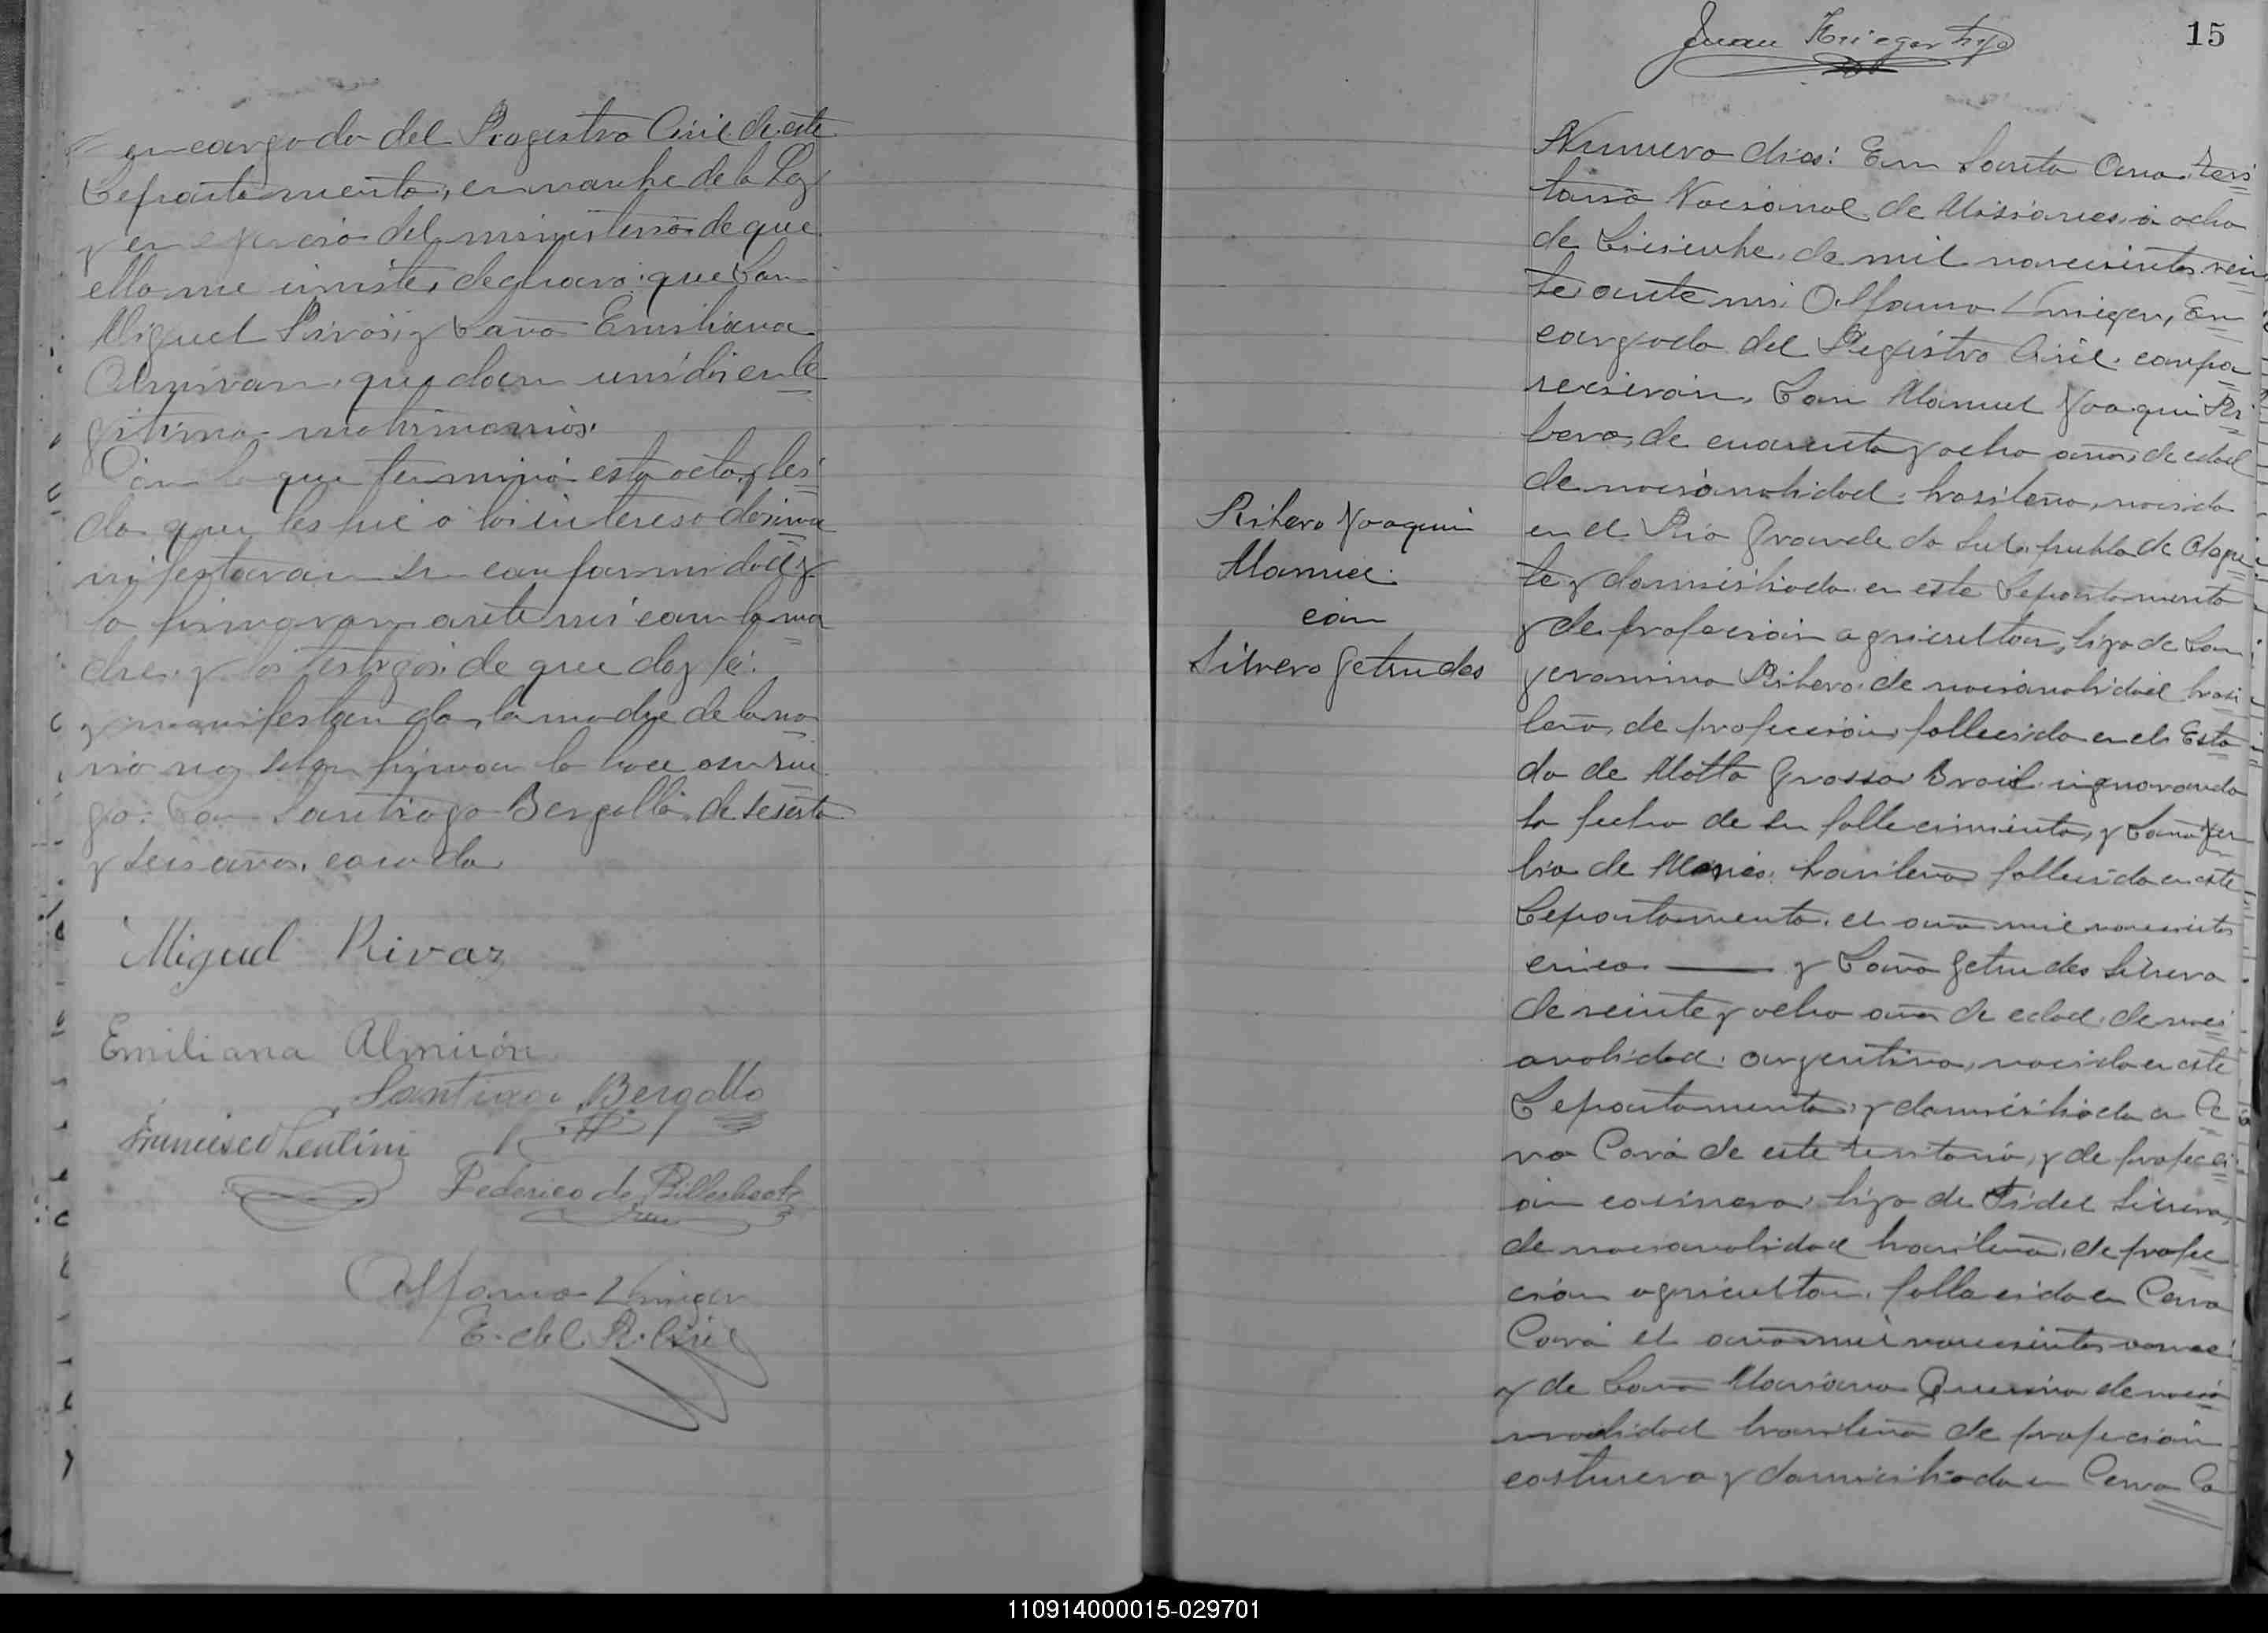 encargado del Registro Civil de este
Departamento, en nombre de la Ley
y en ejercicio del ministerio de que
ella me inviste, declaro: que Don
Miguel Rivas, y Doña Emiliana
Almiron, quedan unidos en le
gitimo matrimonio.
Con lo que terminó esta acta, y lei
da que les fue a los interesados, ma
nifestaron su conformidad, y
la firmaron ante mi con la ma
dre y los testigos, de que doy fé:
y manifestando la madre de la no
via no saber firmar lo hace a su rue
go: Don Santiago Bergallo, de sesenta
y seis años, casado
Miguel Rivaz
Emiliana Almirón
Santiago Bergallo
Francisco Lentini
Federico de Billerbeck
Alfonso
E. del R. Civil
Juan Krieger hijo
15
Numero dies: En Santa Ana, Terri
torio Nacional de Misiones, a ocho
de Diciembre, de mil novecientos vein
te, ante mi Alfonso En
cargado del Registro Civil, compa
recieron, Don Manuel Joaquin Ri
bero, de cuarenta y ocho años, de edad
de nacionalidad, brasileño, nacido
en el Rio Grande do Sul, pueblo de Alegre
te y domiciliado en este Departamento
y de profecion agricultor, hijo de Don
Jeronimo Ribero, de nacionalidad brasi
leño, de profeccion, fallecido en el Esta
do de Matto Grosso Brasil ignorando
la fecha de su fallecimiento, y Doña
de brasileña fallecida en este
Departamento, el año mil novecientos
cinco y Doña Getrudes Silvero
de veinte y ocho años de edad, de naci
onalidad, argentina, nacida en este
Departamento, y domiciliada en Ce
rro Corá de este territorio, y de profecci
on cocinera, hija de Fidel Silvero,
de nacionalidad brasileña, de profe
cion agricultor, fallecido en Cerro
Corá el año mil novecientos once
y de Doña Mariana de nacio
nalidad brasileña de profecion
costurera y domiciliada en Cerro Co
Ribero Joaquin
Manuel
con
Silvero Getrudes
110914000015-029701